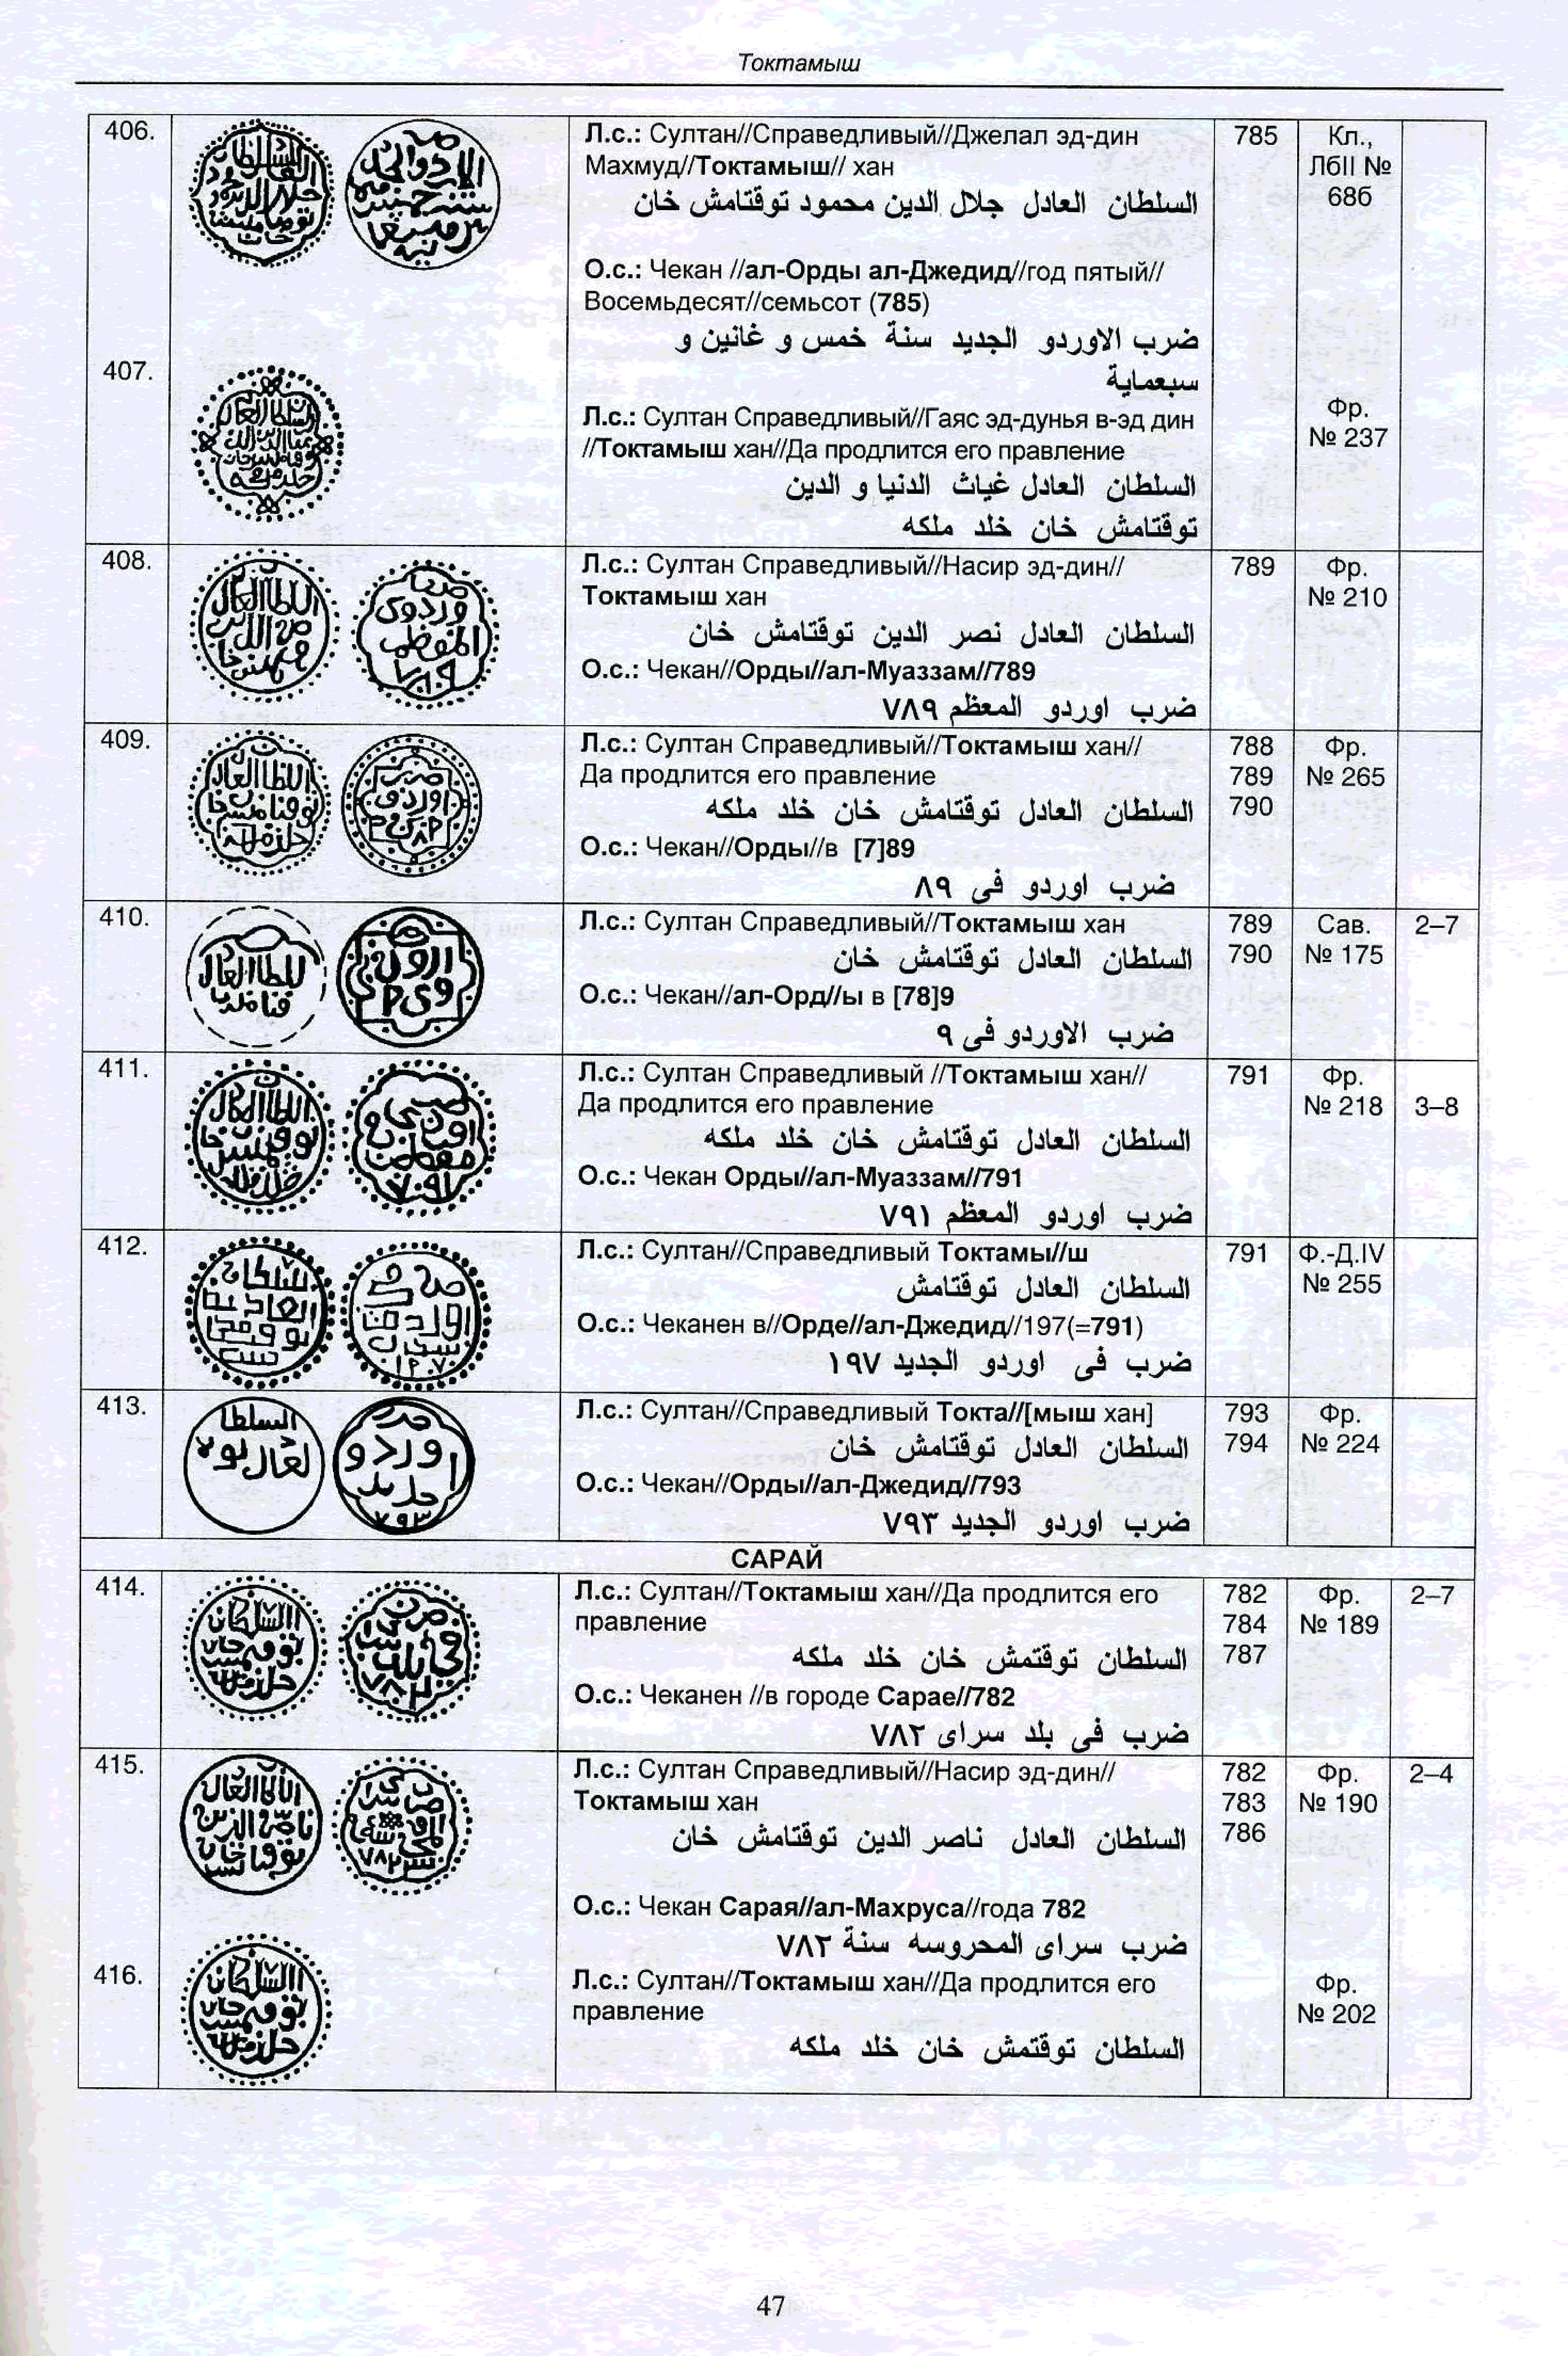 Токтамыш
406.
Л.с.: Султан//Справедливый//Джелал эд-дин
Махмуд//Токтамыш// хан
السلطان العادل جلال الدين محمود توقتامش خان
О.с.: Чекан //ал-Орды ал-Джедид//год пятый//
Восемьдесят//семьсот (785)
ضرب الاوردو الجديد سنة خمس و غانين و
سبعماية
785
Кл.,
ЛбII №
68б
407.
Л.с.: Султан Справедливый//Гаяс эд-дунья в-эд дин
//Токтамыш хан//Да продлится его правление
السلطان العادل غياث الدنيا و الدين
توقتامش خان خلد ملكه
Фр.
№ 237
408.
Л.с.: Султан Справедливый//Насир эд-дин//
Токтамыш хан
السلطان العادل نصر الدين توقتامش خان
О.с.: Чекан//Орды//ал-Муаззам//789
ضرب اوردو المعظم ٧٨٩
789
Фр.
№ 210
409.
Л.с.: Султан Справедливый//Токтамыш хан//
Да продлится его правление
السلطان العادل توقتامش خان خلد ملكه
О.с.: Чекан//Орды//в [7]89
ضرب اوردو فى ٨٩
788
789
790
Фр.
№ 265
410.
Л.с.: Султан Справедливый//Токтамыш хан
السلطان العادل توقتامش خان
О.с.: Чекан//ал-Орд//ы в [78]9
ضرب الاوردو فى ٩
789
790
Сав.
№ 175
2–7
411.
Л.с.: Султан Справедливый //Токтамыш хан//
Да продлится его правление
السلطان العادل توقتامش خان خلد ملكه
О.с.: Чекан Орды//ал-Муаззам//791
ضرب اوردو المعظم ٧٩١
791
Фр.
№ 218
3–8
412.
Л.с.: Султан//Справедливый Токтамы//ш
السلطان العادل توقتامش
О.с.: Чеканен в//Орде//ал-Джедид//197(=791)
ضرب فى اوردو الجديد ١٩٧
791
Ф.-Д.IV
№ 255
413.
Л.с.: Султан//Справедливый Токта//[мыш хан]
السلطان العادل توقتامش خان
О.с.: Чекан//Орды//ал-Джедид//793
ضرب اوردو الجديد ٧٩٣
793
794
Фр.
№ 224
САРАЙ
414.
Л.с.: Султан//Токтамыш хан//Да продлится его
правление
السلطان توقتمش خان خلد ملكه
О.с.: Чеканен //в городе Сарае//782
ضرب فى بلد سراى ٧٨٢
782
784
787
Фр.
№ 189
2–7
415.
Л.с.: Султан Справедливый//Насир эд-дин//
Токтамыш хан
السلطان العادل ناصر الدين توقتامش خان
О.с.: Чекан Сарая//ал-Махруса//года 782
ضرب سراى المحروسه سنة ٧٨٢
782
783
786
Фр.
№ 190
2–4
416.
Л.с.: Султан//Токтамыш хан//Да продлится его
правление
السلطان توقتمش خان خلد ملكه
Фр.
№ 202
47